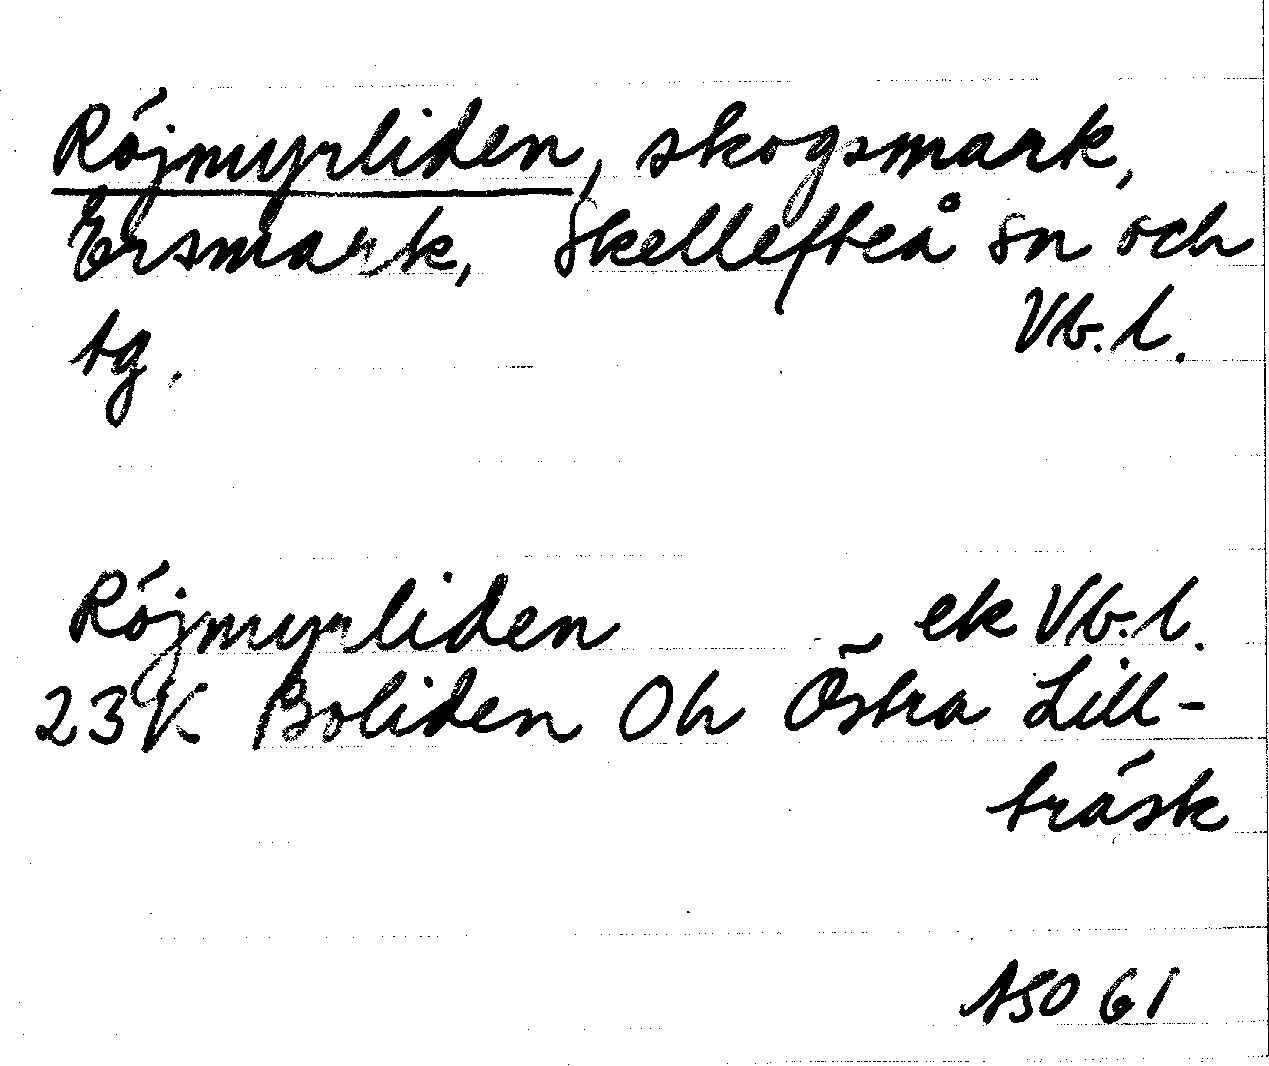 Röjmyrliden, skogsmark,
Ersmark, Skellefteå sn och
tg. Vb. l.
Röjmyrliden ek Vb. l.
23K Boliden Oh Östra Lill-
träsk
ASO 61